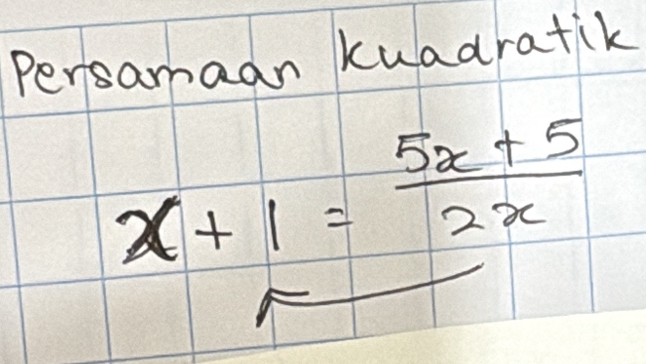 Persamaan Kuadratik
x + 1 = \frac{5x + 5}{2x}